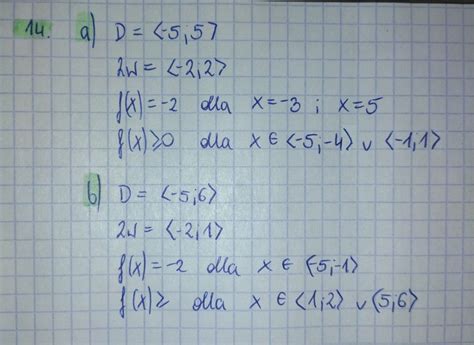 14. a) D = <-5,5>
ZW = <-2,2>
f(x) = -2 dla x = -3 i x = 5
f(x) ≥ 0 dla x ∈ <-5;-4> ∪ <-1,1>
b) D = <-5;6>
ZW = <-2,1>
f(x) = -2 dla x ∈ (-5;-1>
f(x) ≥ dla x ∈ <1;2> ∪ (5,6>